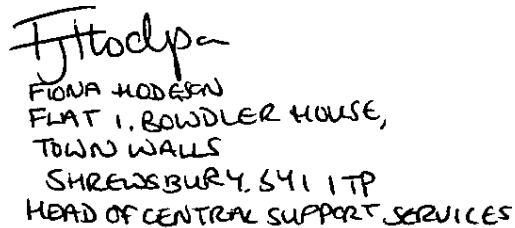 FJHodgson
FIONA HODGSON
FLAT 1, BOWDLER HOUSE,
TOWN WALLS
SHREWSBURY. SY1 1TP
HEAD OF CENTRAL SUPPORT SERVICES